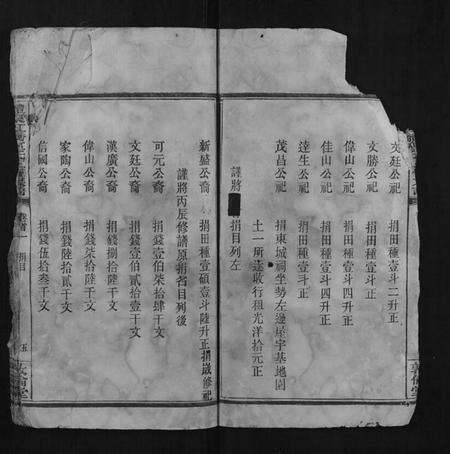 文廷公祀 捐田種壹斗二升正
文勝公祀 捐田種壹斗正
偉山公祀 捐田種壹斗四升正
佳山公祀 捐田種壹斗四升正
達生公祀 捐田種壹斗正
茂昌公祀 捐東城祠坐勢左邊屋宇基地園
土一所遞收行租光洋拾元正
謹將 捐目列左
新盛公裔 捐田種壹碩壹斗陸升正捐歲修祀
謹將丙辰修譜原捐省目列後
可元公裔 捐錢壹伯柒拾肆千文
文廷公裔 捐錢壹伯貳拾壹千文
漢廣公裔 捐錢捌拾陸千文
偉山公裔 捐錢柒拾陸千文
家陶公裔 捐錢陸拾貳千文
信國公裔 捐錢伍拾叁千文
卷首一 捐目 五
敦倫堂